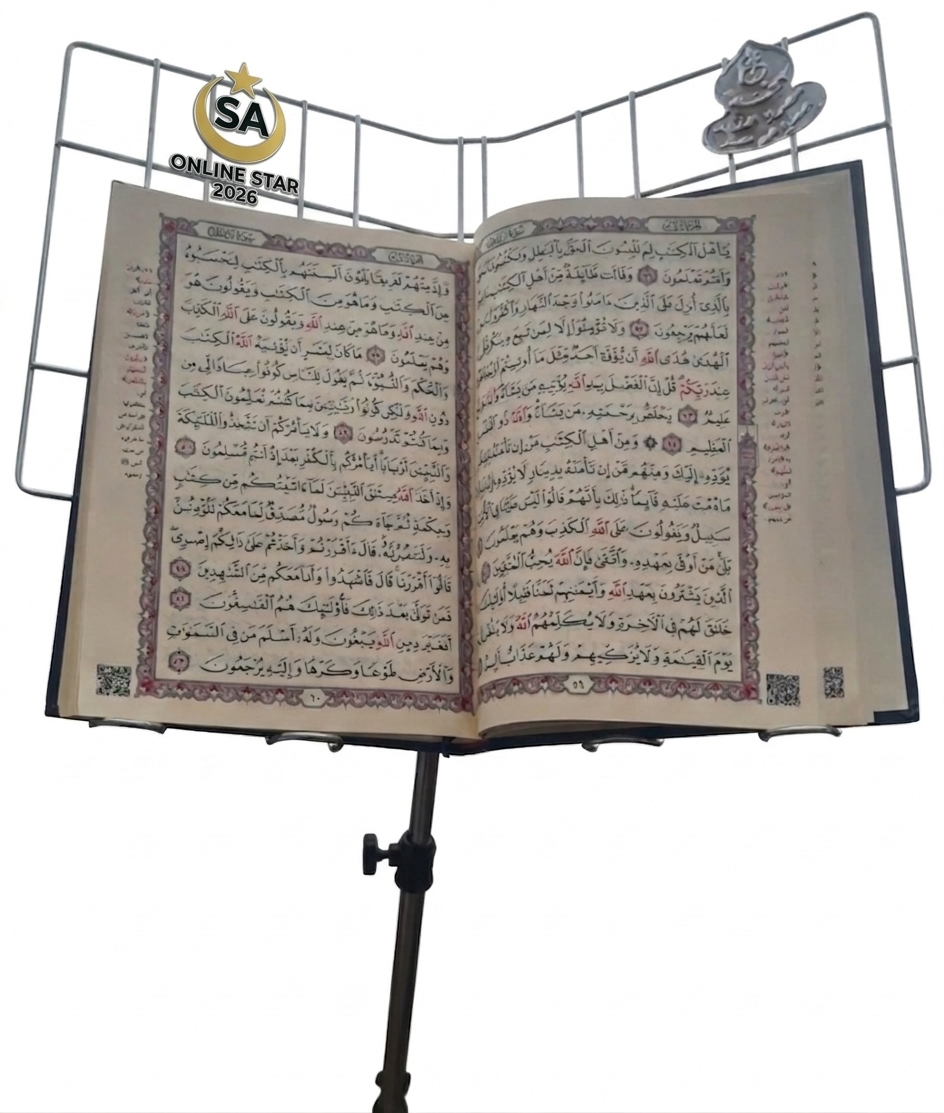 SA
ONLINE STAR
2026
يَٰٓأَهْلَ ٱلْكِتَٰبِ لِمَ تَلْبِسُونَ ٱلْحَقَّ بِٱلْبَٰطِلِ وَتَكْتُمُونَ
وَأَنتُمْ تَعْلَمُونَ ٧١ وَقَالَت طَّآئِفَةٌ مِّنْ أَهْلِ ٱلْكِتَٰبِ
بِٱلَّذِىٓ أُنزِلَ عَلَى ٱلَّذِينَ ءَامَنُوا۟ وَجْهَ ٱلنَّهَارِ وَٱكْفُرُوٓا۟
لَعَلَّهُمْ يَرْجِعُونَ ٧٢ وَلَا تُؤْمِنُوٓا۟ إِلَّا لِمَن تَبِعَ دِينَكُمْ قُلْ
ٱلْهُدَىٰ هُدَى ٱللَّهِ أَن يُؤْتَىٰٓ أَحَدٌ مِّثْلَ مَآ أُوتِيتُمْ
عِندَ رَبِّكُمْ قُلْ إِنَّ ٱلْفَضْلَ بِيَدِ ٱللَّهِ يُؤْتِيهِ مَن يَشَآءُ وَٱللَّهُ
عَلِيمٌ ٧٣ يَخْتَصُّ بِرَحْمَتِهِۦ مَن يَشَآءُ وَٱللَّهُ ذُو ٱلْفَضْلِ
ٱلْعَظِيمِ ٧٤ ۞ وَمِنْ أَهْلِ ٱلْكِتَٰبِ مَنْ إِن تَأْمَنْهُ
يُؤَدِّهِۦٓ إِلَيْكَ وَمِنْهُم مَّنْ إِن تَأْمَنْهُ بِدِينَارٍ لَّا يُؤَدِّهِۦٓ إِلَيْكَ
مَا دُمْتَ عَلَيْهِ قَآئِمًا ذَٰلِكَ بِأَنَّهُمْ قَالُوا۟ لَيْسَ عَلَيْنَا فِى
سَبِيلٌ وَيَقُولُونَ عَلَى ٱللَّهِ ٱلْكَذِبَ وَهُمْ يَعْلَمُونَ
بَلَىٰ مَنْ أَوْفَىٰ بِعَهْدِهِۦ وَٱتَّقَىٰ فَإِنَّ ٱللَّهَ يُحِبُّ ٱلْمُتَّقِينَ
ٱلَّذِينَ يَشْتَرُونَ بِعَهْدِ ٱللَّهِ وَأَيْمَٰنِهِمْ ثَمَنًا قَلِيلًا أُو۟لَٰٓئِكَ
خَلَٰقَ لَهُمْ فِى ٱلْءَاخِرَةِ وَلَا يُكَلِّمُهُمُ ٱللَّهُ وَلَا يَنظُرُ
يَوْمَ ٱلْقِيَٰمَةِ وَلَا يُزَكِّيهِمْ وَلَهُمْ عَذَابٌ أَلِيمٌ
٥٩
وَإِنَّ مِنْهُمْ لَفَرِيقًا يَلْوُۥنَ أَلْسِنَتَهُم بِٱلْكِتَٰبِ لِتَحْسَبُوهُ
مِنَ ٱلْكِتَٰبِ وَمَا هُوَ مِنَ ٱلْكِتَٰبِ وَيَقُولُونَ هُوَ
مِنْ عِندِ ٱللَّهِ وَمَا هُوَ مِنْ عِندِ ٱللَّهِ وَيَقُولُونَ عَلَى ٱللَّهِ ٱلْكَذِبَ
وَهُمْ يَعْلَمُونَ ٧٨ مَا كَانَ لِبَشَرٍ أَن يُؤْتِيَهُ ٱللَّهُ ٱلْكِتَٰبَ
وَٱلْحُكْمَ وَٱلنُّبُوَّةَ ثُمَّ يَقُولَ لِلنَّاسِ كُونُوا۟ عِبَادًا لِّى مِن
دُونِ ٱللَّهِ وَلَٰكِن كُونُوا۟ رَبَّٰنِيِّۦنَ بِمَا كُنتُمْ تُعَلِّمُونَ ٱلْكِتَٰبَ
وَبِمَا كُنتُمْ تَدْرُسُونَ ٧٩ وَلَا يَأْمُرَكُمْ أَن تَتَّخِذُوا۟ ٱلْمَلَٰٓئِكَةَ
وَٱلنَّبِيِّۦنَ أَرْبَابًا أَيَأْمُرُكُم بِٱلْكُفْرِ بَعْدَ إِذْ أَنتُم مُّسْلِمُونَ ٨٠
وَإِذْ أَخَذَ ٱللَّهُ مِيثَٰقَ ٱلنَّبِيِّۦنَ لَمَآ ءَاتَيْتُكُم مِّن كِتَٰبٍ
وَحِكْمَةٍ ثُمَّ جَآءَكُمْ رَسُولٌ مُّصَدِّقٌ لِّمَا مَعَكُمْ لَتُؤْمِنُنَّ
بِهِۦ وَلَتَنصُرُنَّهُۥ قَالَ ءَأَقْرَرْتُمْ وَأَخَذْتُمْ عَلَىٰ ذَٰلِكُمْ إِصْرِى
قَالُوٓا۟ أَقْرَرْنَا قَالَ فَٱشْهَدُوا۟ وَأَنَا۠ مَعَكُم مِّنَ ٱلشَّٰهِدِينَ ٨١
فَمَن تَوَلَّىٰ بَعْدَ ذَٰلِكَ فَأُو۟لَٰٓئِكَ هُمُ ٱلْفَٰسِقُونَ ٨٢
أَفَغَيْرَ دِينِ ٱللَّهِ يَبْغُونَ وَلَهُۥٓ أَسْلَمَ مَن فِى ٱلسَّمَٰوَٰتِ
وَٱلْأَرْضِ طَوْعًا وَكَرْهًا وَإِلَيْهِ يُرْجَعُونَ ٨٣
٦٠